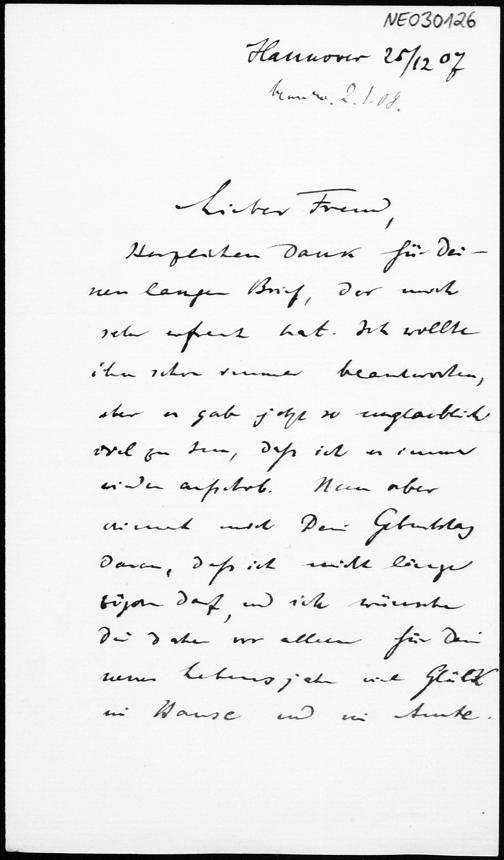 NEO30126
Hannover 25/12 07
2.1.08.
Lieber Freund,
Herzlichen Dank für Dei-
nen langen Brief, der mich
sehr erfreut hat. Ich wollte
ihn schon immer beantworten,
aber es gab jetzt so unglaublich
viel zu tun, daß ich es immer
wieder aufschob. Nun aber
erinnert mich Dein Geburtstag
daran, daß ich nicht länger
zögern darf, und ich wünsche
Dir daher vor allem für Dein
neues Lebensjahr viel Glück
im Hause und im Amte.